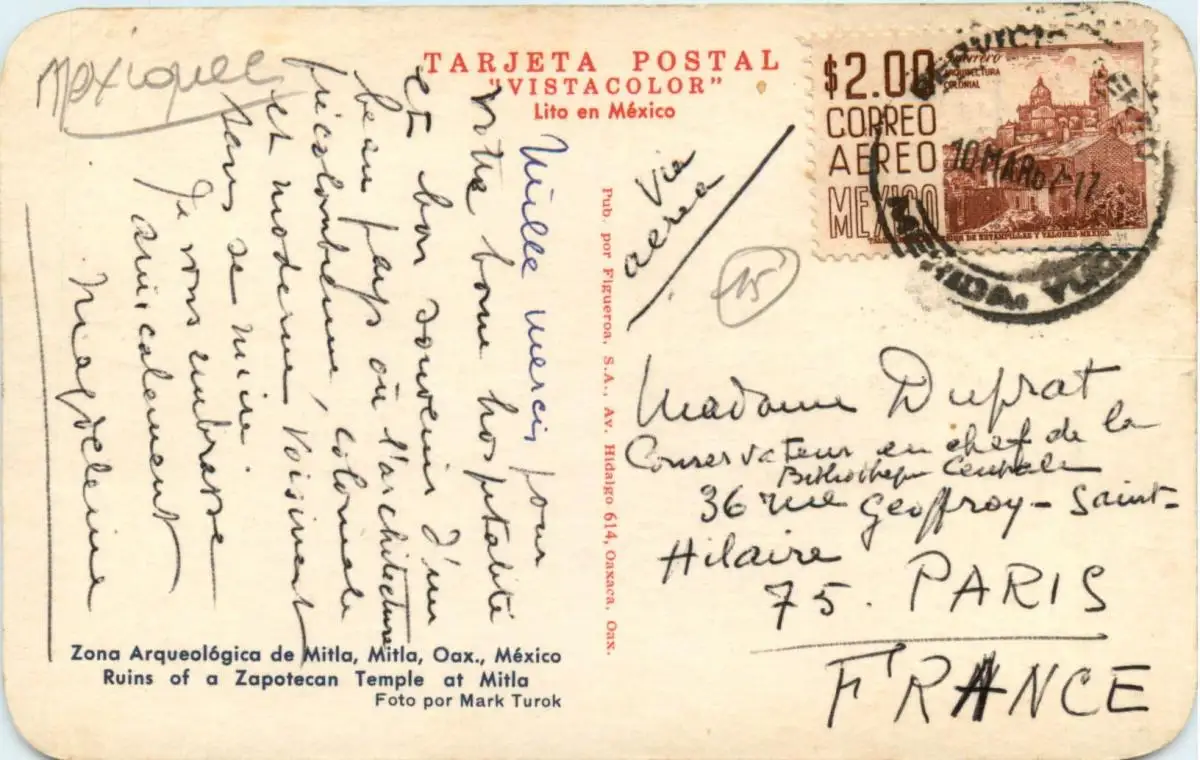 Mexique
TARJETA POSTAL
"VISTACOLOR"
Lito en México
Mille mercis pour
votre bonne hospitalité
et bon souvenir d'un
beau pays où l'architecture
précolombienne, coloniale
et moderne voisinent
sans se nuire
Je vous embrasse
amicalement
Magdeleine
Zona Arqueológica de Mitla, Mitla, Oax., México
Ruins of a Zapotecan Temple at Mitla
Foto por Mark Turok
Pub. por Figueroa, S.A., Av. Hidalgo 614, Oaxaca, Oax.
Via
aerea
15
$2.00
CORREO
AEREO
MEXICO
ARQUITECTURA
COLONIAL
10 MAR 62-17
MERIDA. YUC.
Madame Duprat
Conservateur en chef de la
Bibliothèque Centrale
36 rue Geoffroy-Saint-
Hilaire
75. PARIS
FRANCE